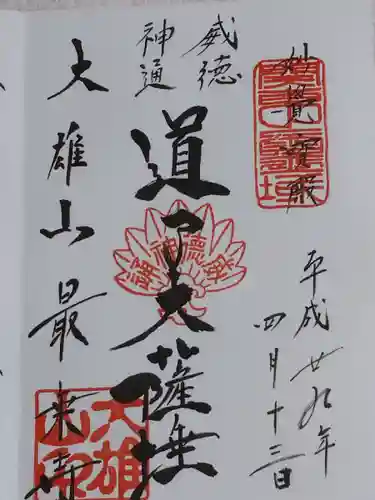 妙覺宝殿
平成廿九年
四月十三日
威徳
神通
道了大薩埵
大雄山最乗寺